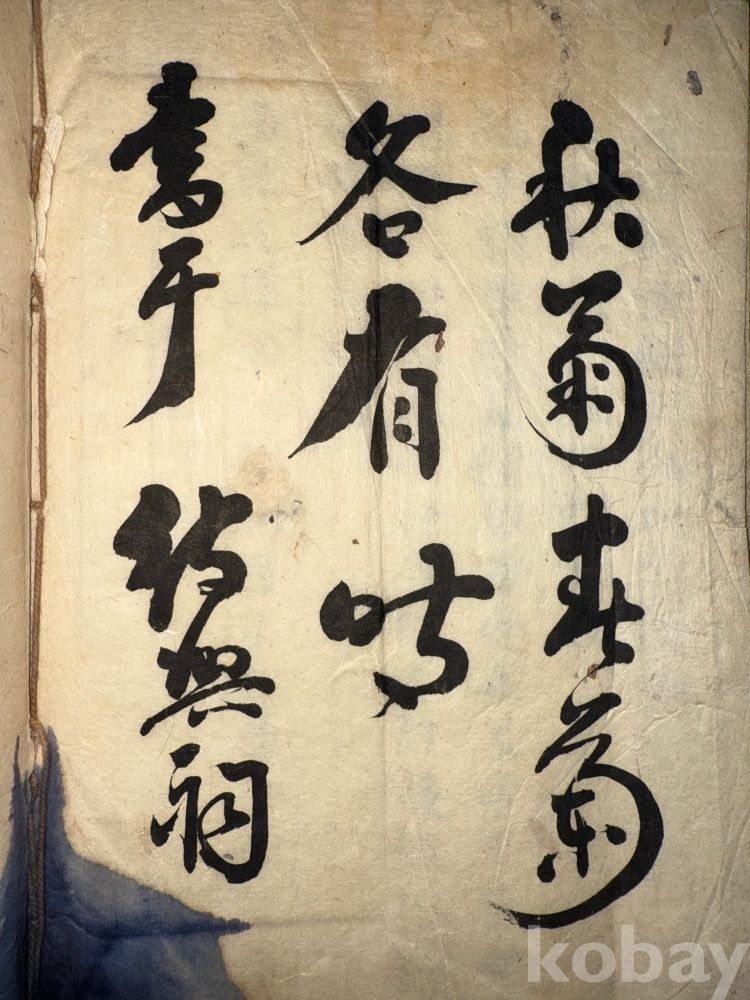 秋菊春蘭
各有時
書于
興祠
kobay